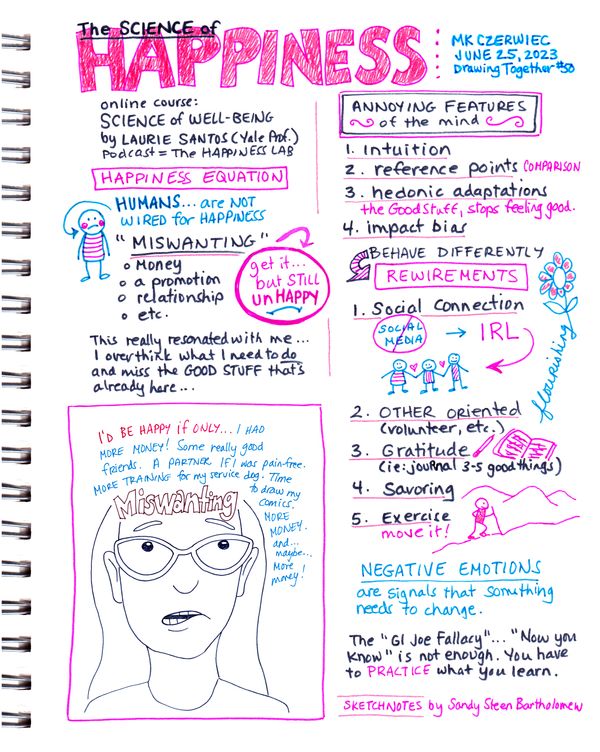 The SCIENCE of
HAPPINESS:
MK CZERWIEC
JUNE 25, 2023
Drawing Together #50
online course:
SCIENCE of WELL-BEING
by LAURIE SANTOS (Yale Prof.)
Podcast = The HAPPINESS LAB
HAPPINESS EQUATION
HUMANS... are NOT
WIRED for HAPPINESS
"MISWANTING"
o Money
o a promotion
o relationship
o etc.
get it...
but STILL
unHAPPY
This really resonated with me...
I overthink what I need to do
and miss the GOOD STUFF that's
already here...
I'D BE HAPPY if ONLY... I HAD
MORE MONEY! Some really good
friends. A PARTNER. If I was pain-free.
MORE TRAINING for my service dog. Time
to draw my
comics.
MORE
MONEY.
and...
maybe...
More
money!
Miswanting
ANNOYING FEATURES
of the mind
1. Intuition
2. reference points COMPARISON
3. hedonic adaptations
the Good Stuff, stops feeling good.
4. impact bias
BEHAVE DIFFERENTLY
REWIREMENTS
1. Social Connection
SOCIAL
MEDIA
→ IRL
flourishing
2. OTHER oriented
(volunteer, etc.)
3. Gratitude
(ie: journal 3-5 good things)
4. Savoring
5. Exercise
move it!
NEGATIVE EMOTIONS
are signals that something
needs to change.
The "GI Joe Fallacy"... "Now you
Know" is not enough. You have
to PRACTICE what you learn.
SKETCHNOTES by Sandy Steen Bartholomew